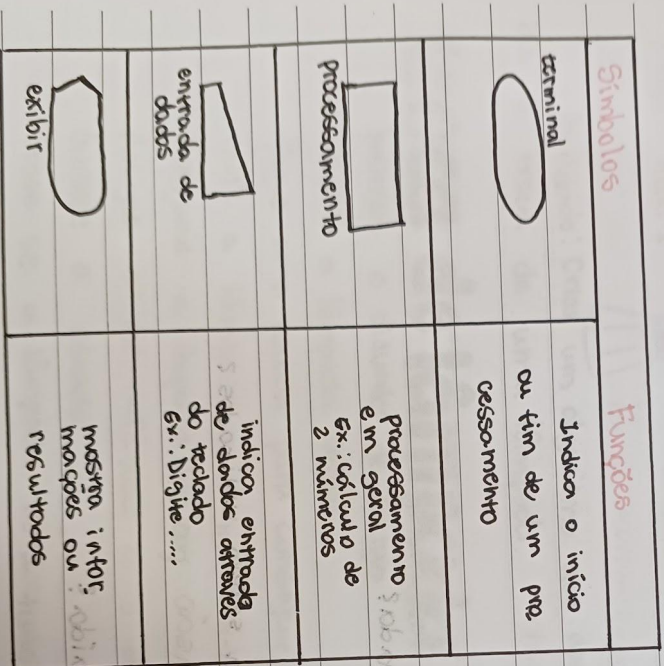 Símbolos
Funções
terminal
Indica o início
ou fim de um pro
cessamento
processamento
processamento
em geral
Ex.: cálculo de
2 números
entrada de
dados
indica entrada
de dados atraves
do teclado
Ex.: Digite.....
exibir
mostra infor
mações ou
resultados